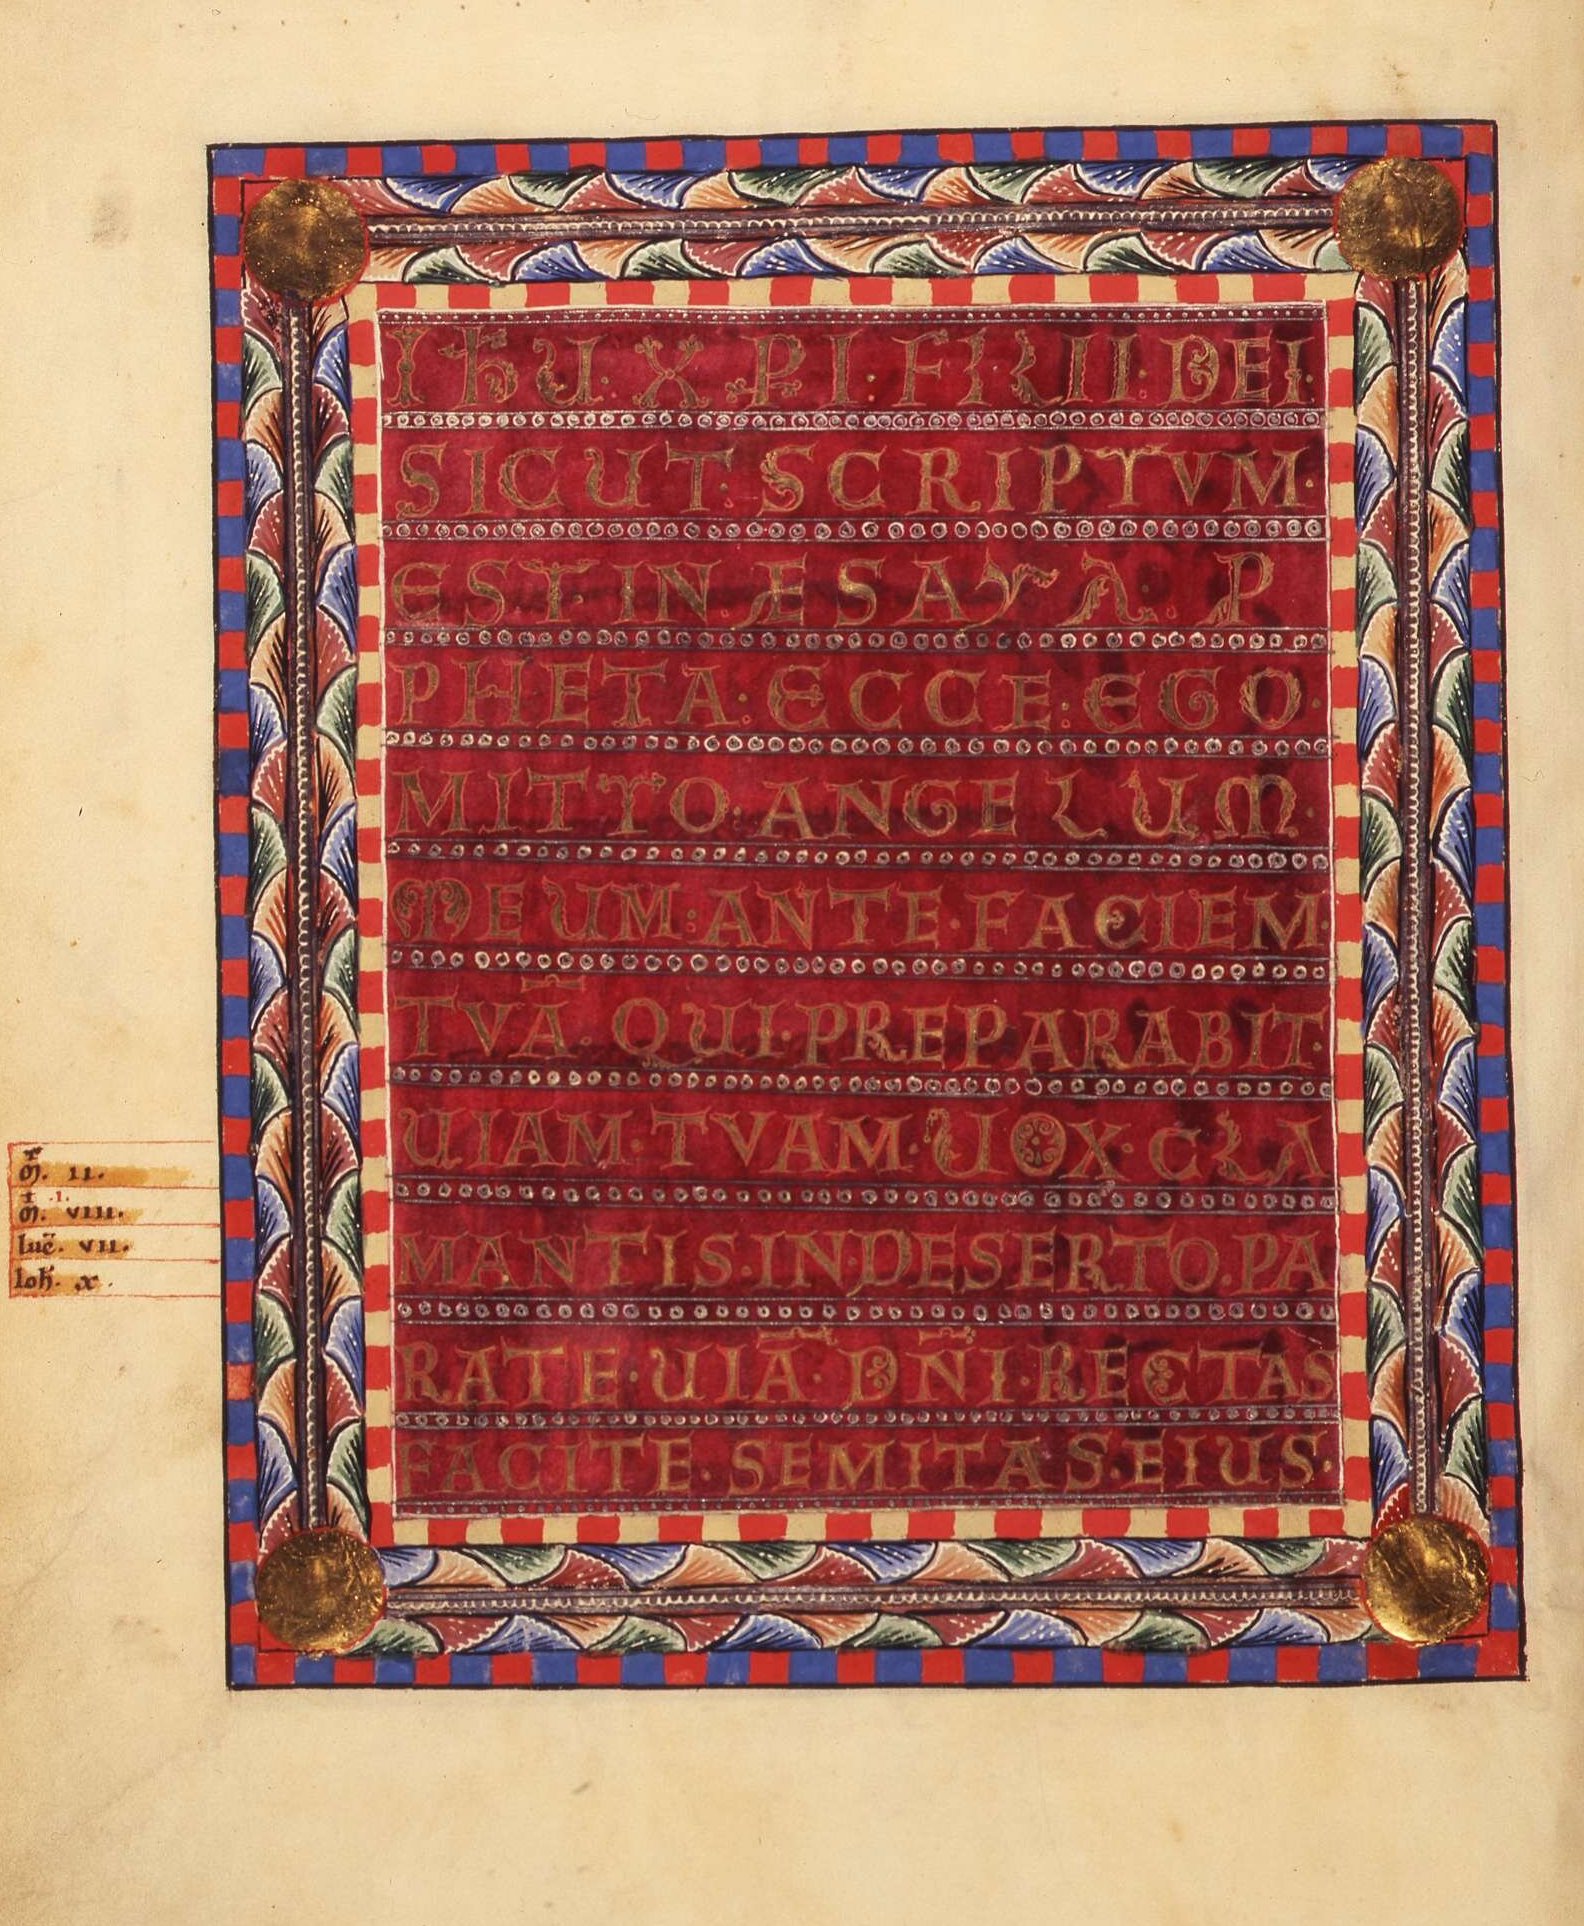 IHU · XPI · FILII · DEI ·
SICUT · SCRIPTVM ·
EST · IN · ESAYA · P
PHETA · ECCE · EGO ·
MITTO · ANGELUM ·
MEUM : ANTE · FACIEM ·
TVĀ · QUI · PREPARABIT ·
UIAM · TVAM · UOX · CLA
MANTIS · IN · DESERTO · PA
RATE · UIĀ · DN̄I · RECTAS
FACITE · SEMITAS · EIUS ·
M. II.
.I.
M. VIII.
luc̄. VII.
Ioh. X.